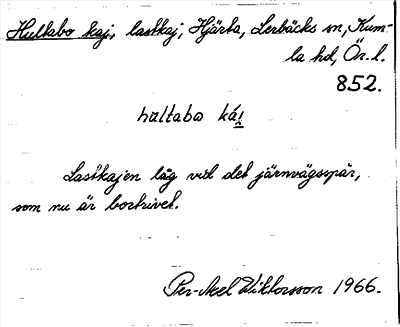 Hultabo kaj, lastkaj; Hjärta, Lerbäcks sn, Kum-
la hd, Ör. l.
852.
hultabo káj
Lastkajen låg vid det järnvägsspår,
som nu är bortrivet.
Per-Axel Wiktorsson 1966.